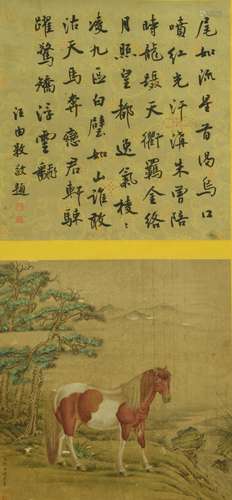 尾如流星首渴烏口
噴紅光汗溝朱曾陪
時龍躡天衢羈金絡
月照皇都逸氣稜稜
凌九區白璧如山誰敢
沽天馬奔戀君軒駷
躍驚矯浮雲翻
汪由敦敬題